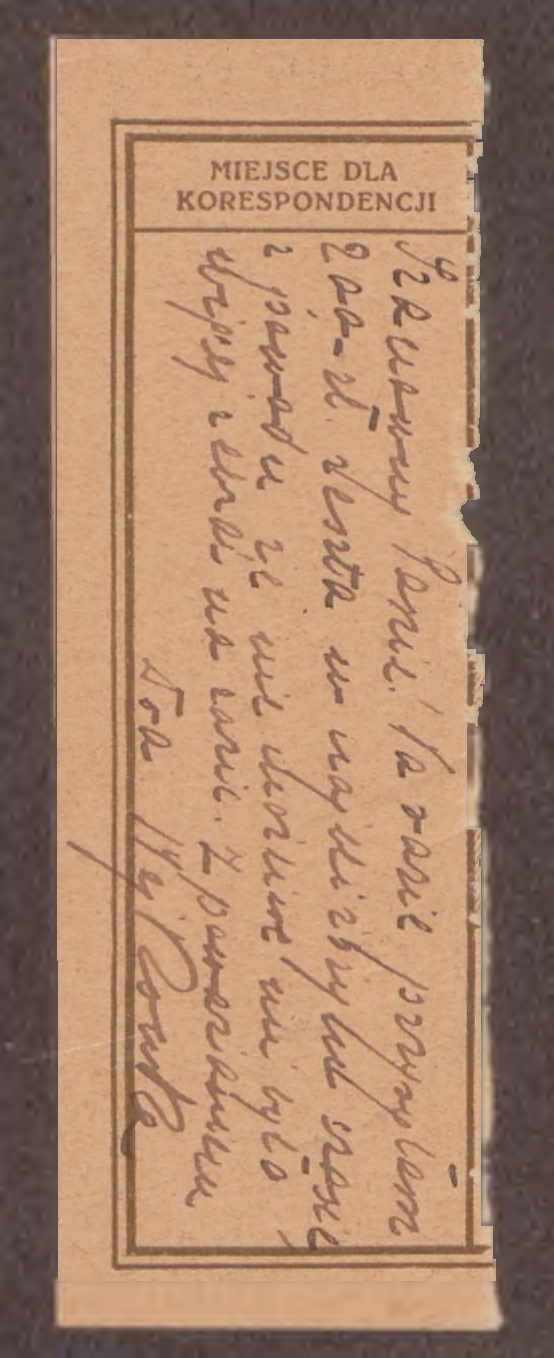 MIEJSCE DLA
KORESPONDENCJI
Szanowny Panie! Na razie przesyłam
200-zł. reszta w najbliższym czasie
z powodu że nie można mi było
więcej zebrać na razie. Z poważaniem